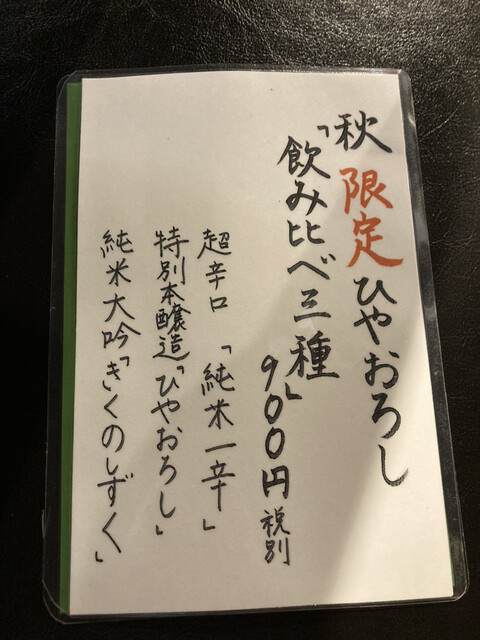 秋限定ひやおろし
「飲み比べ三種」
900円税別
超辛口「純米一辛」
特別本醸造「ひやおろし」
純米大吟「きくのしずく」